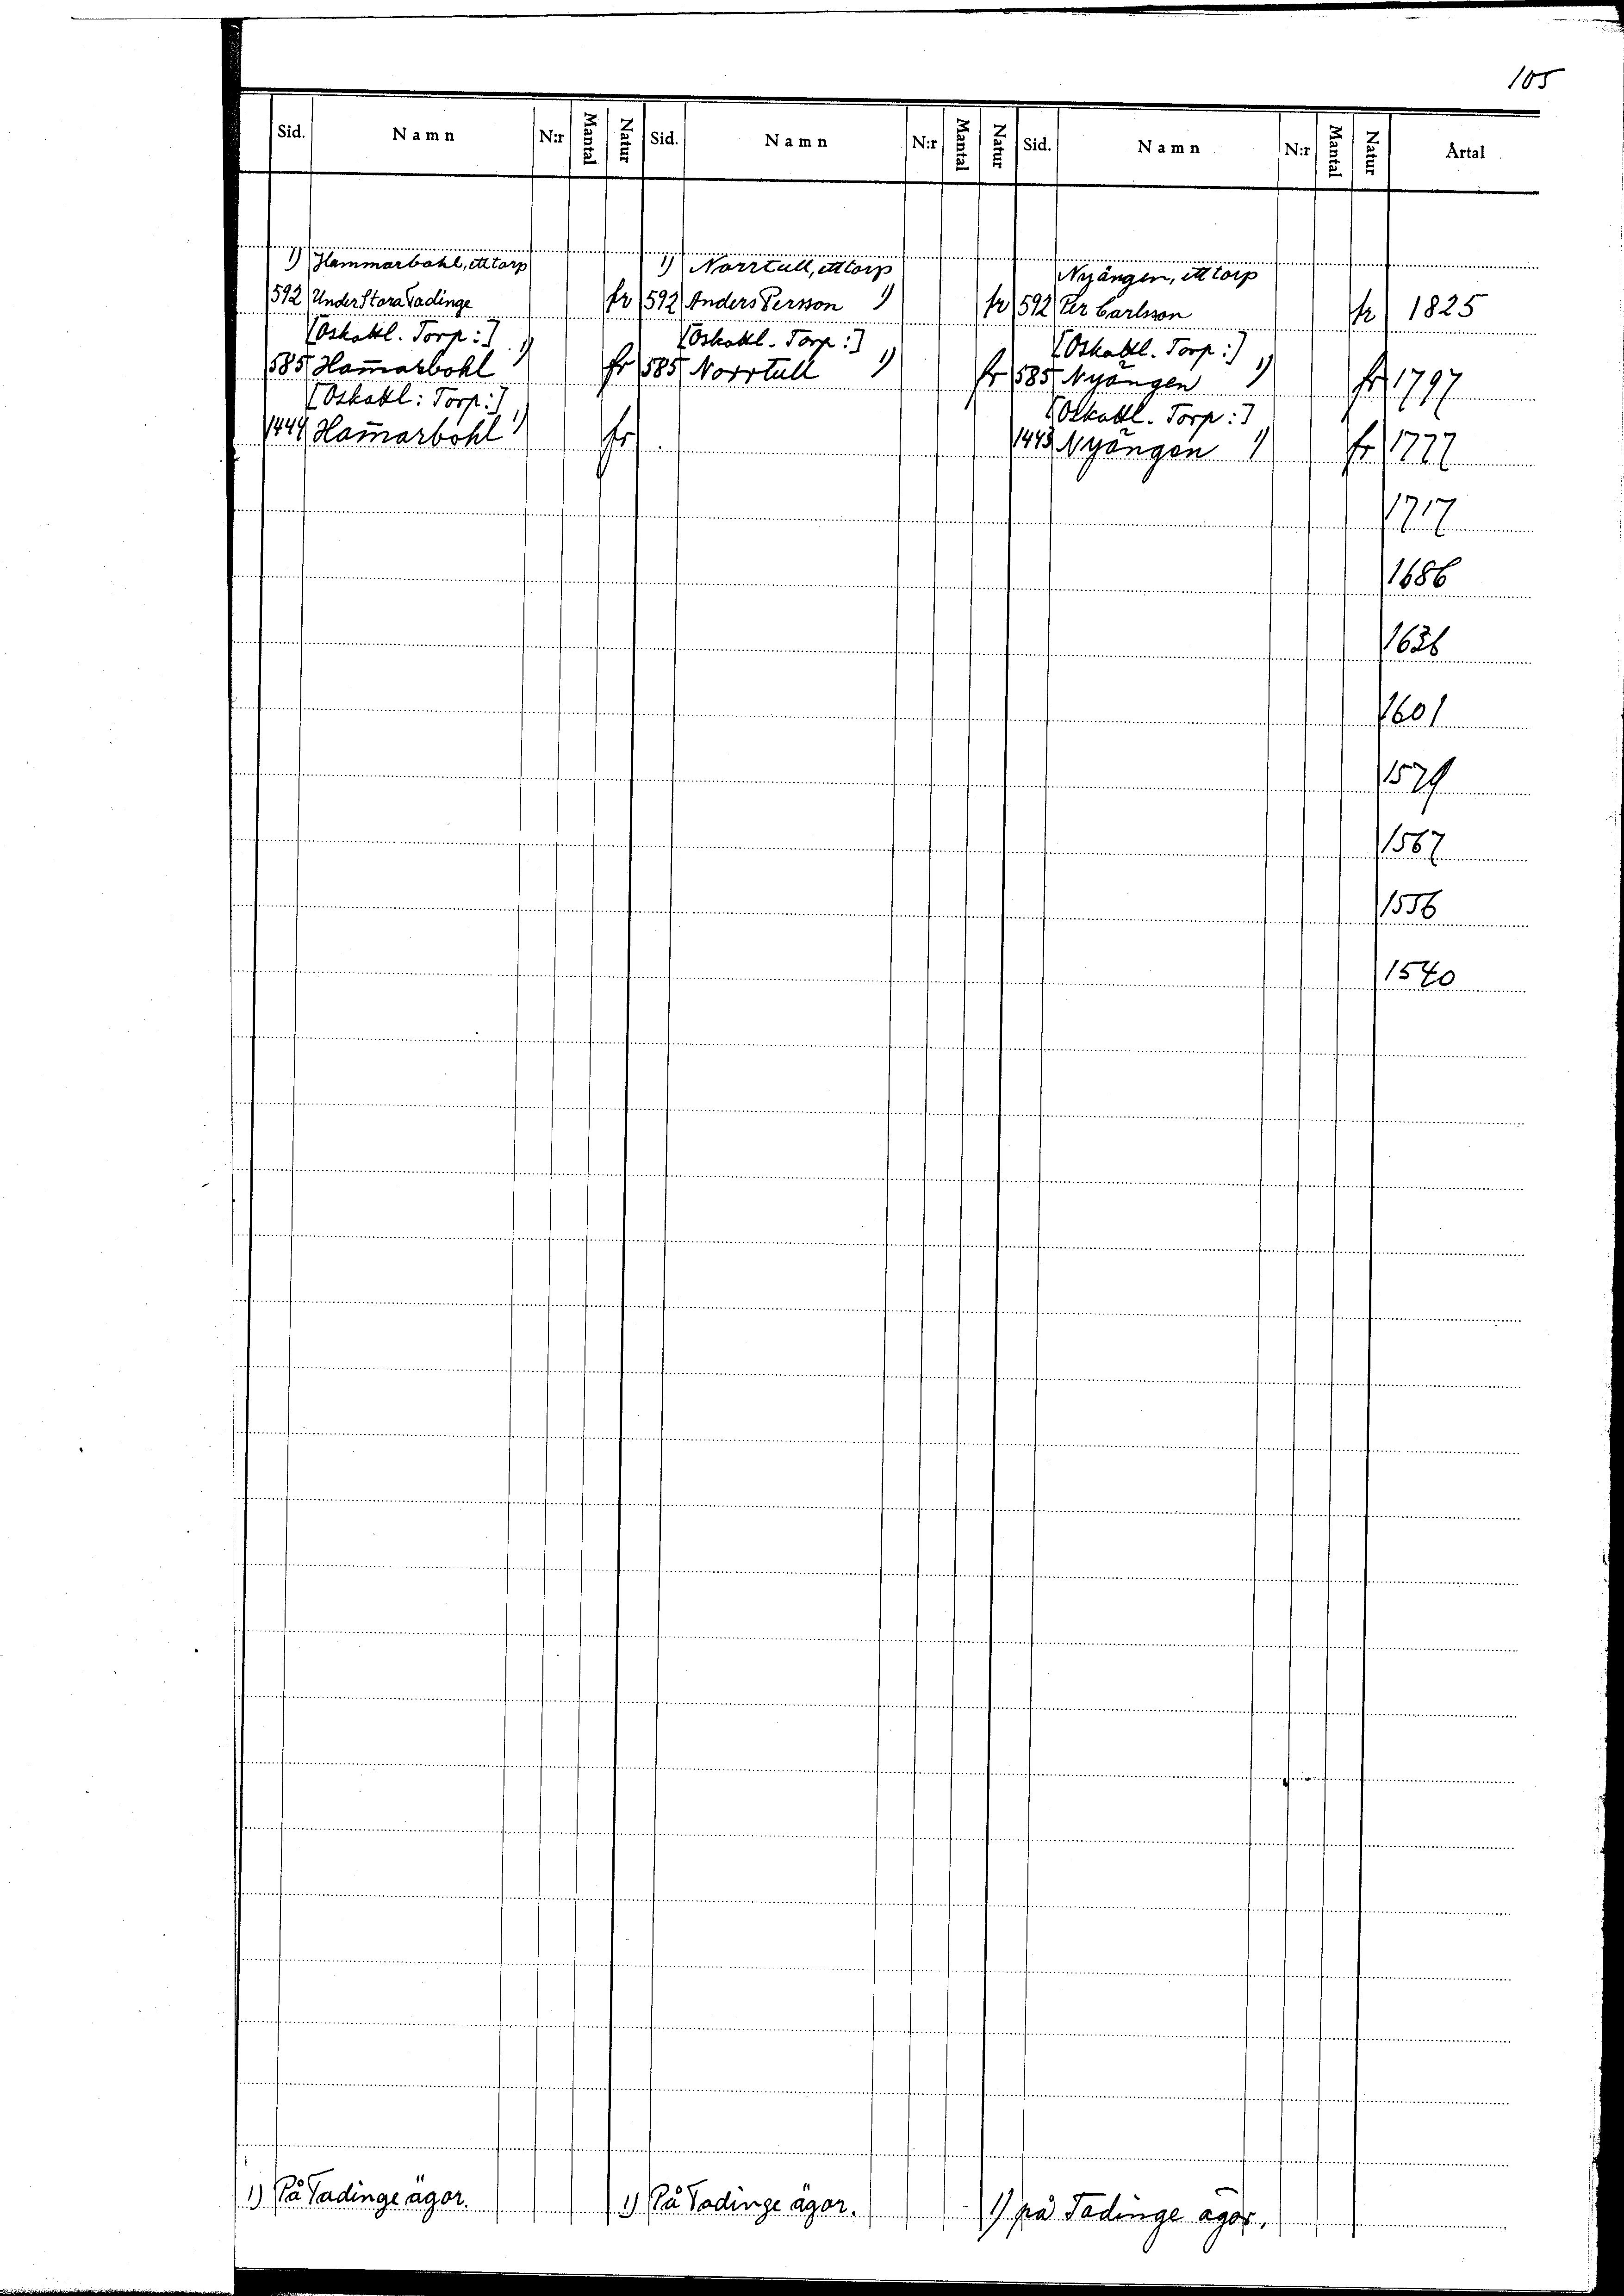 105
Sid. Namn N:r Mantal Natur Sid. Namn N:r Mantal Natur Sid. Namn N:r Mantal Natur Årtal
1) Hammarbohl, ett torp 1) Norrtull, ett torp Nyängen, ett torp
592 Under Stora Tadinge fr 592 Anders Persson 1) fr 592 Per Carlsson fr 1825
[Oskattl. Torp:] [Oskattl. Torp:] [Oskattl. Torp:]
585 Ham̄arbohl 1) fr 585 Norrtull 1) fr 585 Nyängen 1) fr 1797
[Oskattl: Torp:] [Oskattl. Torp:]
1444 Ham̄arbohl 1) fr 1443 Nyängen 1) fr 1777
1717
1686
1636
1601
1579
1567
1556
1540
1) På Tadinge ägor. 1) På Tadinge ägor. 1) på Tadinge ägor.